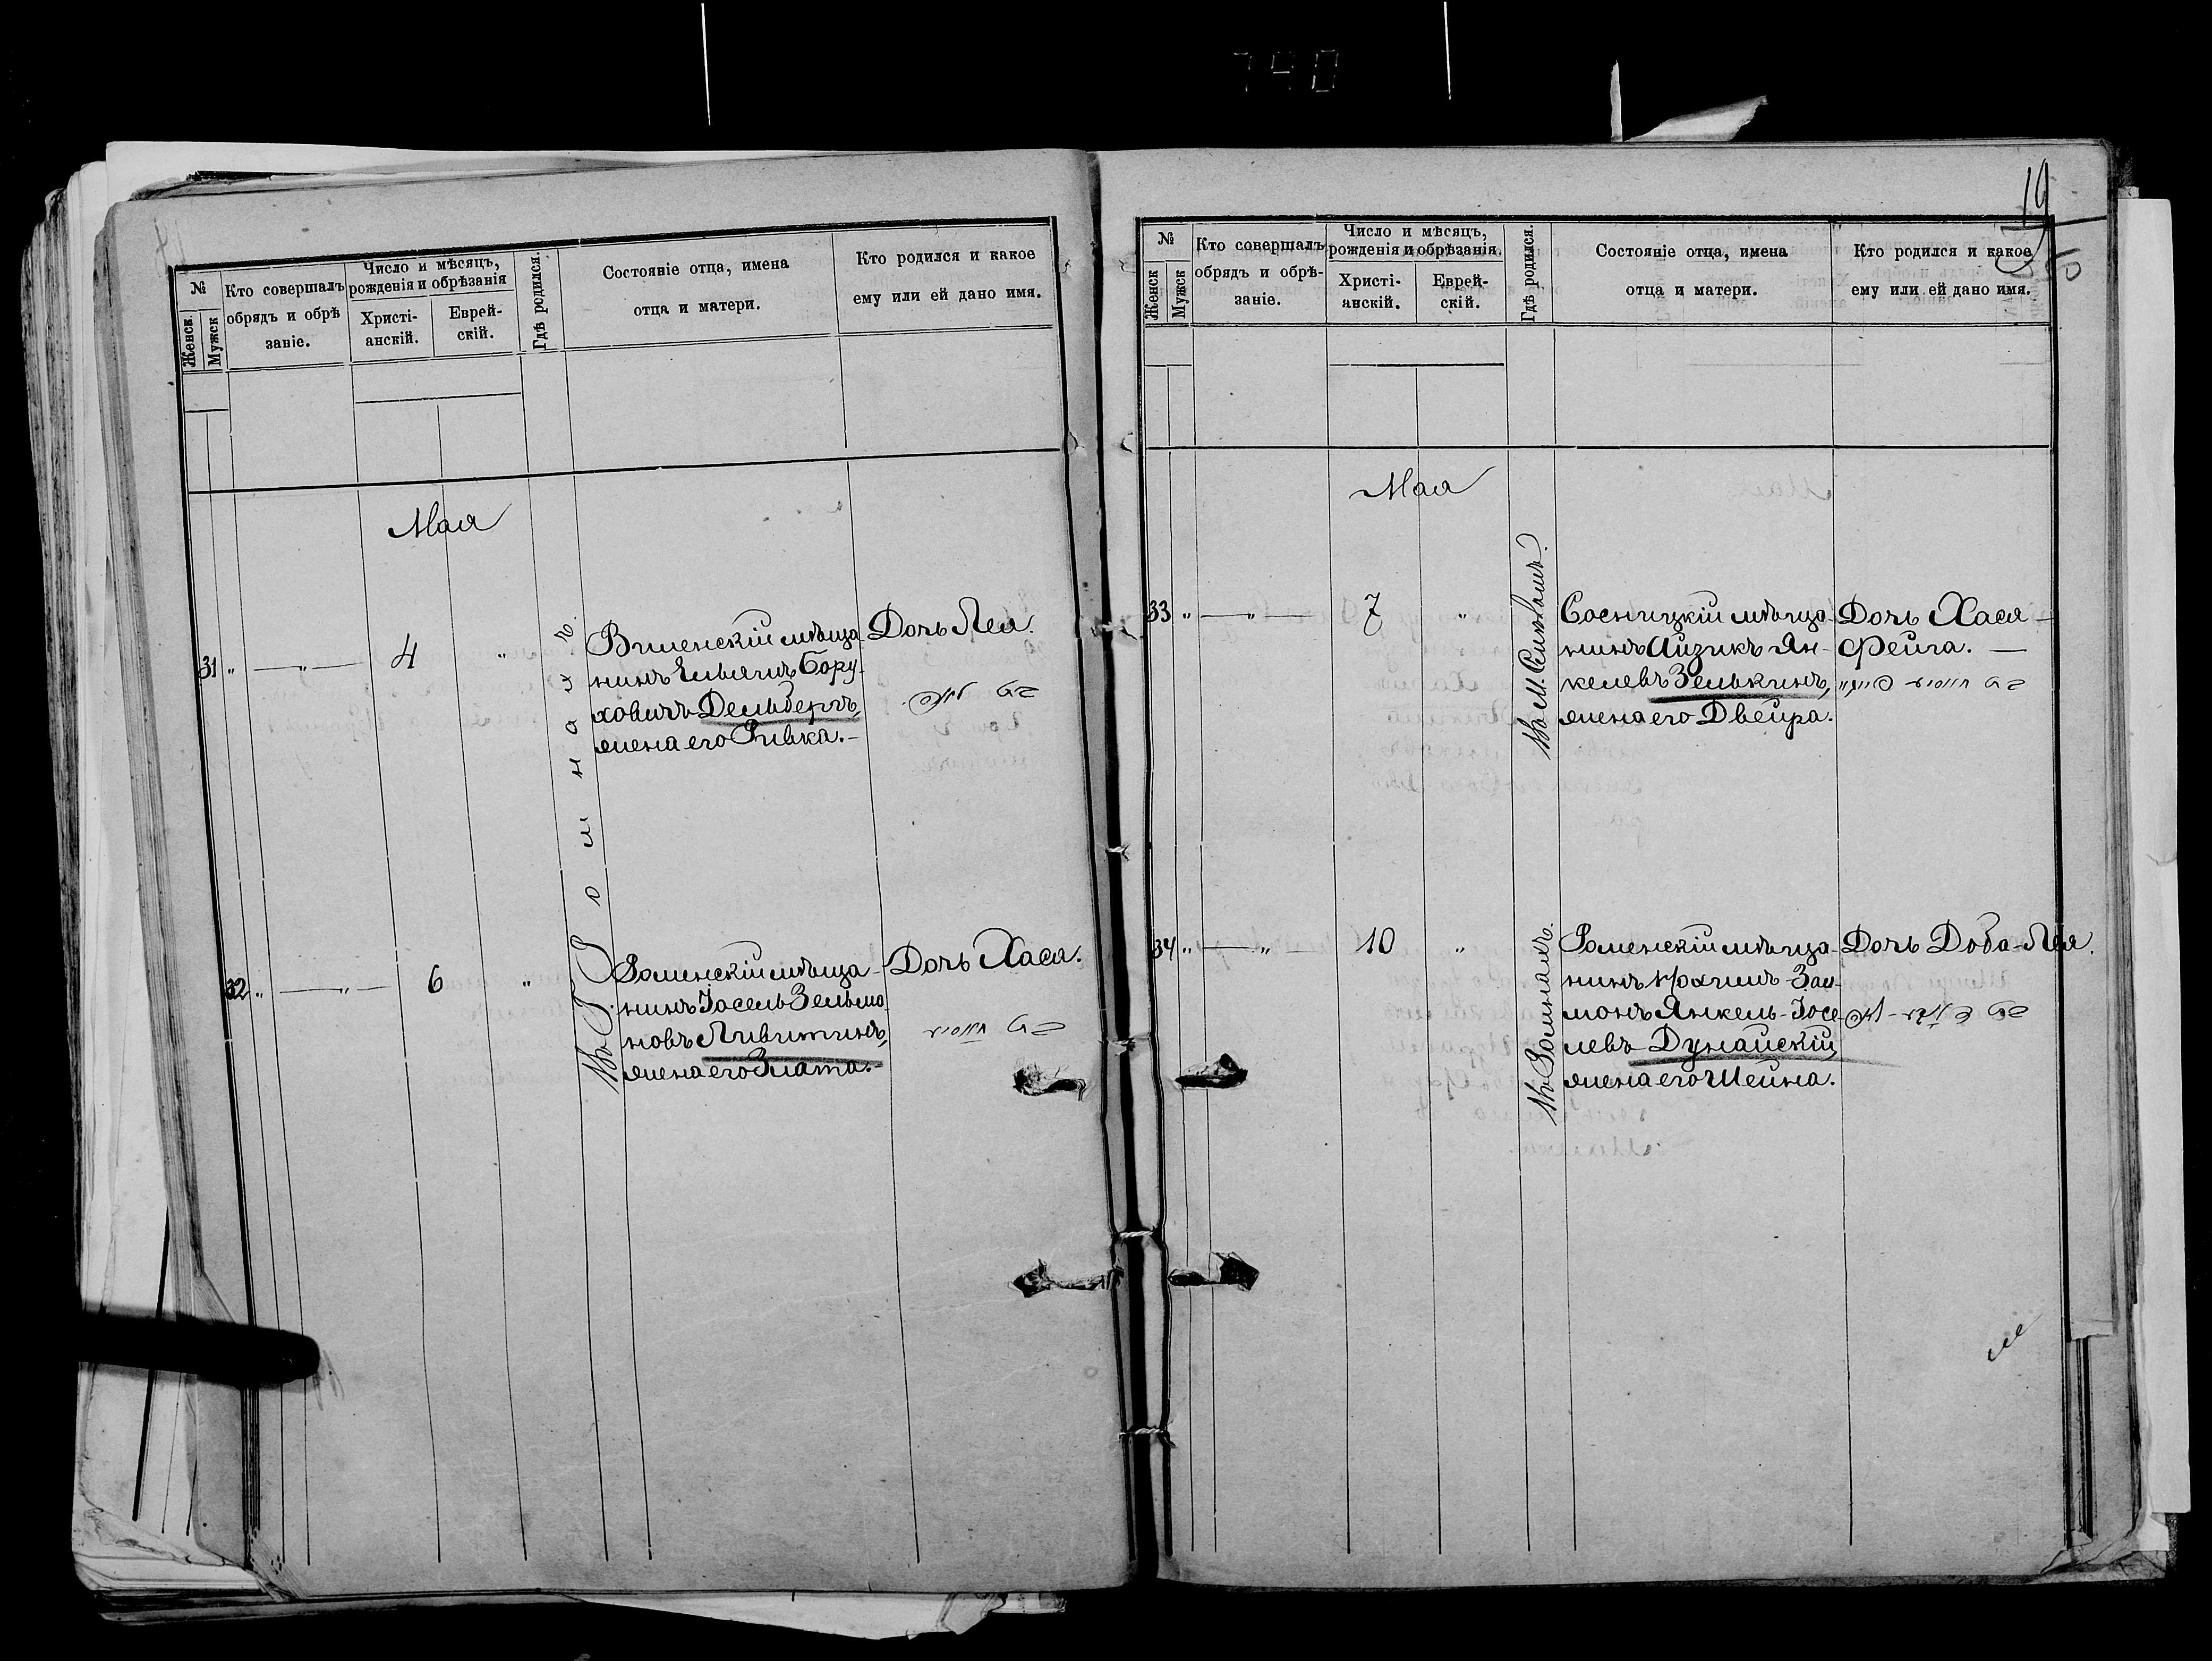 740
№
Женск.
Мужск
Кто совершалъ
обрядъ и обрѣ
заніе.
Число и мѣсяцъ,
рожденія и обрѣзанія
Христі-
анскій.
Еврей-
скій.
Гдѣ родился.
Состояніе отца, имена
отца и матери.
Кто родился и какое
ему или ей дано имя.
Мая
31 " — " — 4 "
Въ Г. Ромнахъ.
Виленскій мѣща-
нинъ Ельяшъ Бору-
ховичъ Дельбергъ,
жена его Ривка. –
Дочь Лея.
בת לאה
32 " — " — 6 "
Роменскій мѣща-
нинъ Іосель Зельма-
новъ Ливитинъ,
жена его Злата.
Дочь Хася.
בת חאסיא
19
№
Женск
Мужск
Кто совершалъ
обрядъ и обрѣ-
заніе.
Число и мѣсяцъ,
рожденія и обрѣзанія.
Христі-
анскій.
Еврей-
скій.
Гдѣ родился.
Состояніе отца, имена
отца и матери.
Кто родился и какое
ему или ей дано имя.
Мая
33 " — " — 7 "
Сосницкій мѣща-
нинъ Айзикъ Ян-
келевъ Зелькинъ,
жена его Двейра.
Дочь Хася –
Фейга. —
34 " — " — 10 "
Въ Ромнахъ.
Роменскій мѣща-
нинъ Нохимъ-Зал-
монъ Янкель-Іосе-
левъ Дунайскій,
жена его Шейна.
Дочь Доба-Лея.